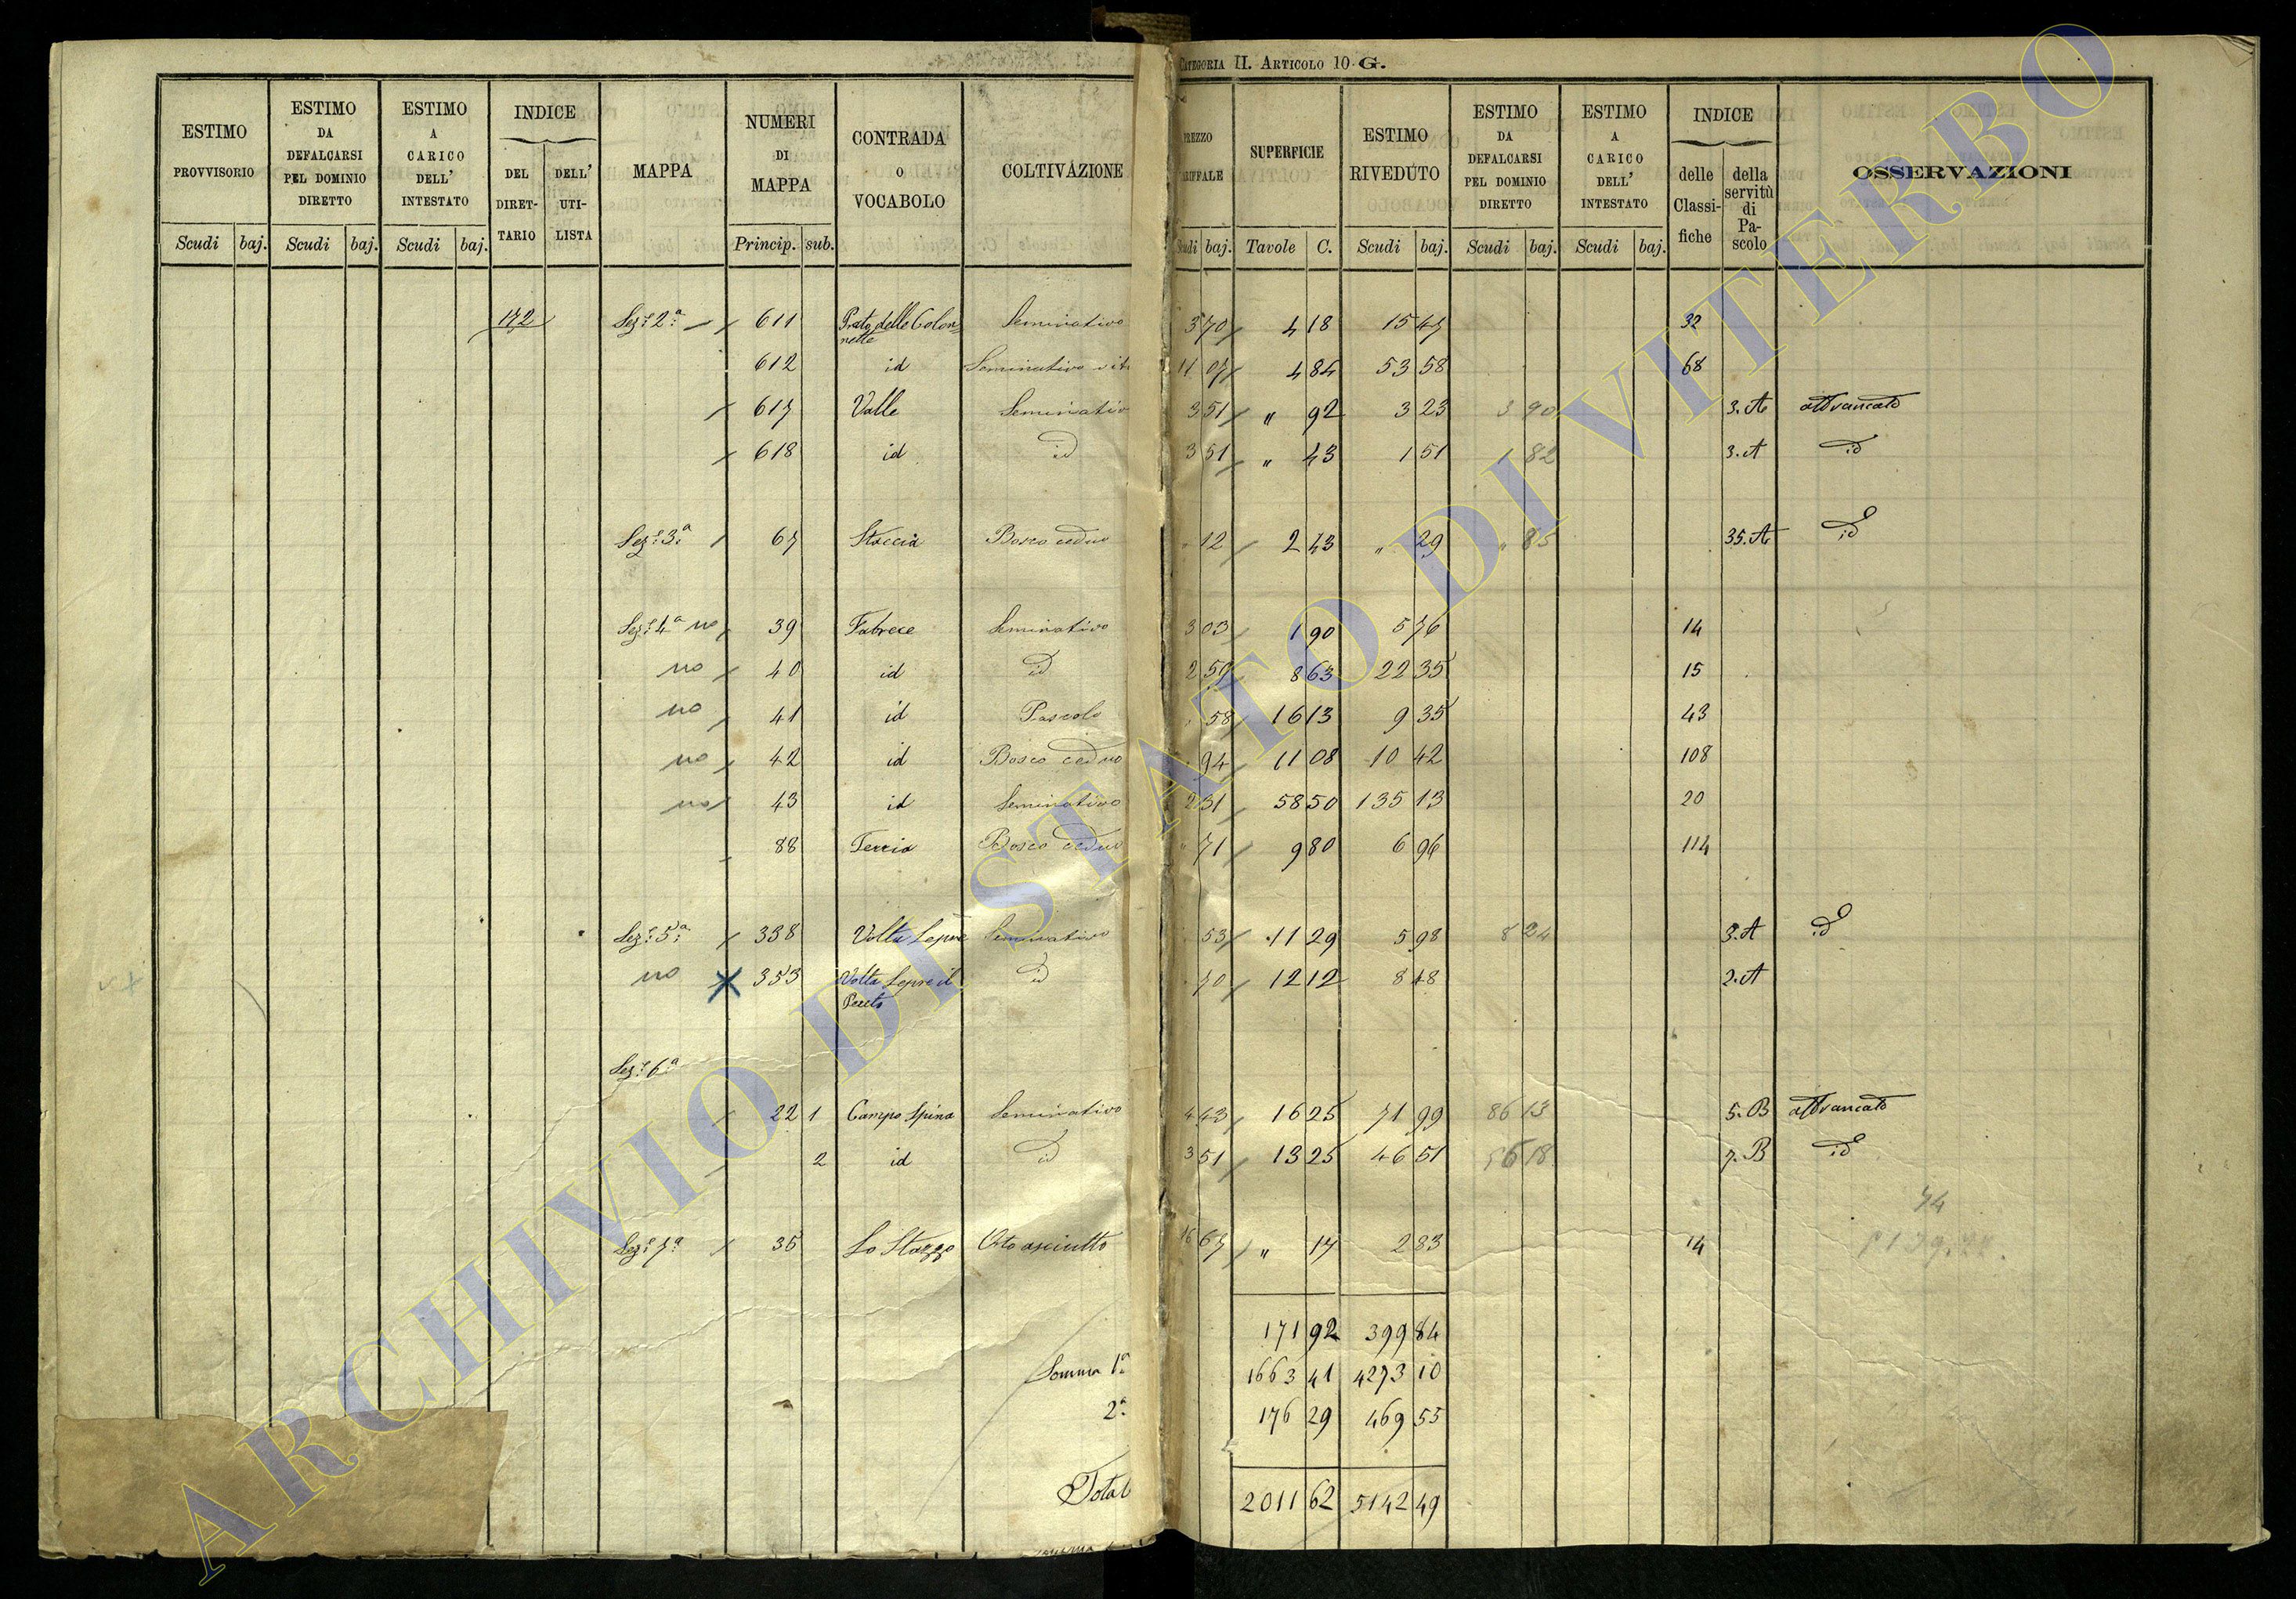 CATEGORIA II. ARTICOLO 10 G.
ESTIMO PROVVISORIO Scudi baj.
ESTIMO DA DEFALCARSI PEL DOMINIO DIRETTO Scudi baj.
ESTIMO A CARICO DELL' INTESTATO Scudi baj.
INDICE DEL DIRET-TARIO DELL' UTI-LISTA
MAPPA
NUMERI DI MAPPA Princip. sub.
CONTRADA O VOCABOLO
COLTIVAZIONE
PREZZO TARIFFALE Scudi baj.
SUPERFICIE Tavole C.
ESTIMO RIVEDUTO Scudi baj.
ESTIMO DA DEFALCARSI PEL DOMINIO DIRETTO Scudi baj.
ESTIMO A CARICO DELL' INTESTATO Scudi baj.
INDICE delle Classi-fiche della servitù di Pa-scolo
OSSERVAZIONI
172 Sez.e 2a 611 Prato delle Colon- Seminativo 3 70 4 18 15 47 32
nelle
612 id Seminativo vit 11 07 4 84 53 58 68
617 Valle Seminativ 3 51 " 92 3 23 3 90 3.A affrancato
618 id id 3 51 " 43 1 51 1 82 3.A id
Sez.e 3a 67 Staccia Bosco ceduo 12 2 43 " 29 " 85 35.A id
Sez.e 4a no 39 Fabrece Seminativo 3 03 1 90 5 76 14
no 40 id id 2 59 8 63 22 35 15
no 41 id Pascolo 58 16 13 9 35 43
no 42 id Bosco ceduo 94 11 08 10 42 108
no 43 id Seminativo 2 31 58 50 135 13 20
88 Ferria Bosco ceduo " 71 9 80 6 96 114
Sez.e 5a 338 Volta Lepre Seminativo 53 11 29 5 98 8 24 3.A id
no 353 Volta Lepre il id 70 12 12 8 48 2.A
Sez.e 6a
22 1 Campo Spina Seminativo 4 43 16 25 71 99 86 13 5.B affrancato
2 id id 3 51 13 25 46 51 56 18 7.B id
74
Sez.e 7a 35 Lo Stazzo Orto asciutto 16 67 " 17 2 83 14
171 92 399 84
Somma 1a 1663 41 4273 10
2a 176 29 469 55
Total 2011 62 5142 49
ARCHIVIO DI STATO DI VITERBO